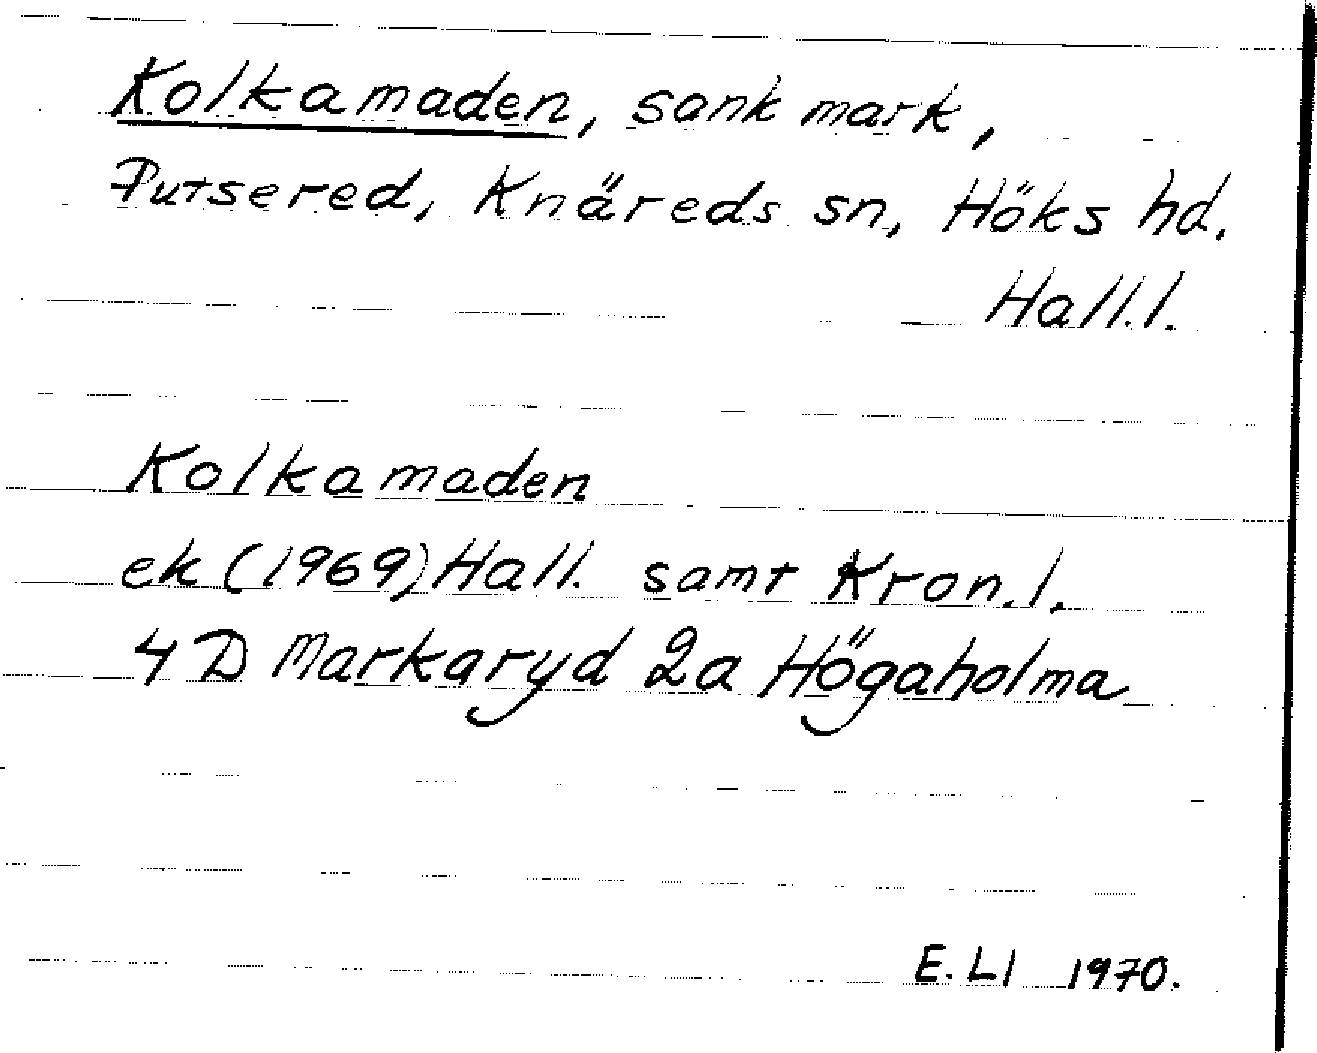 Kolkamaden, sank mark,
Putsered, Knäreds sn, Höks hd.
Hall.l.
Kolkamaden
ek (1969) Hall. samt Kron.l.
4 D Markaryd 2a Högaholma
E. Ll 1970.